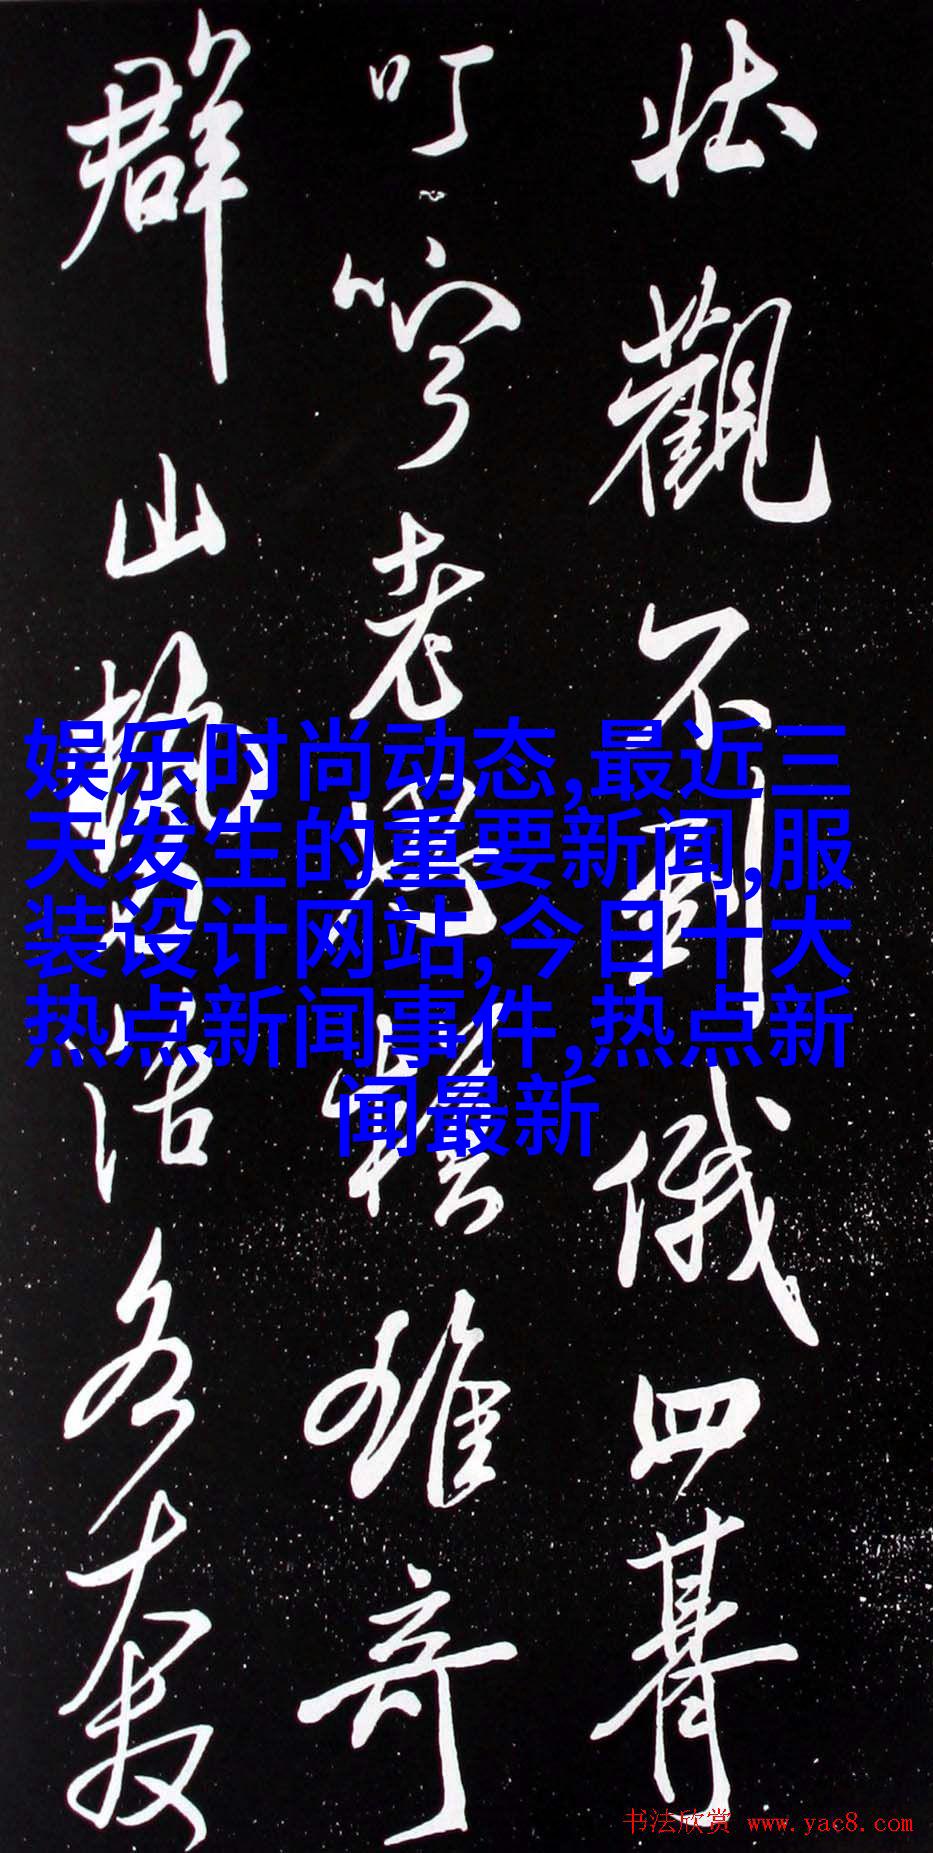 壮觀不到俄四
叮老雄奇
群山勢活各
娱乐时尚动态,最近三
天发生的重要新闻,服
装设计网站,今日十大
热点新闻事件,热点新
闻最新
书法欣赏 www.yac8.com